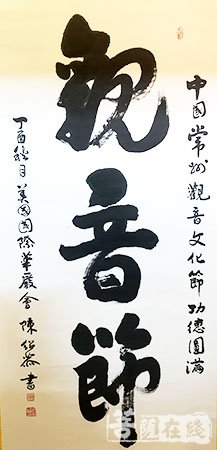 中國常州觀音文化節功德圓滿
觀音節
丁酉秋月美國國際華嚴會陳紹恭書
菩薩在线